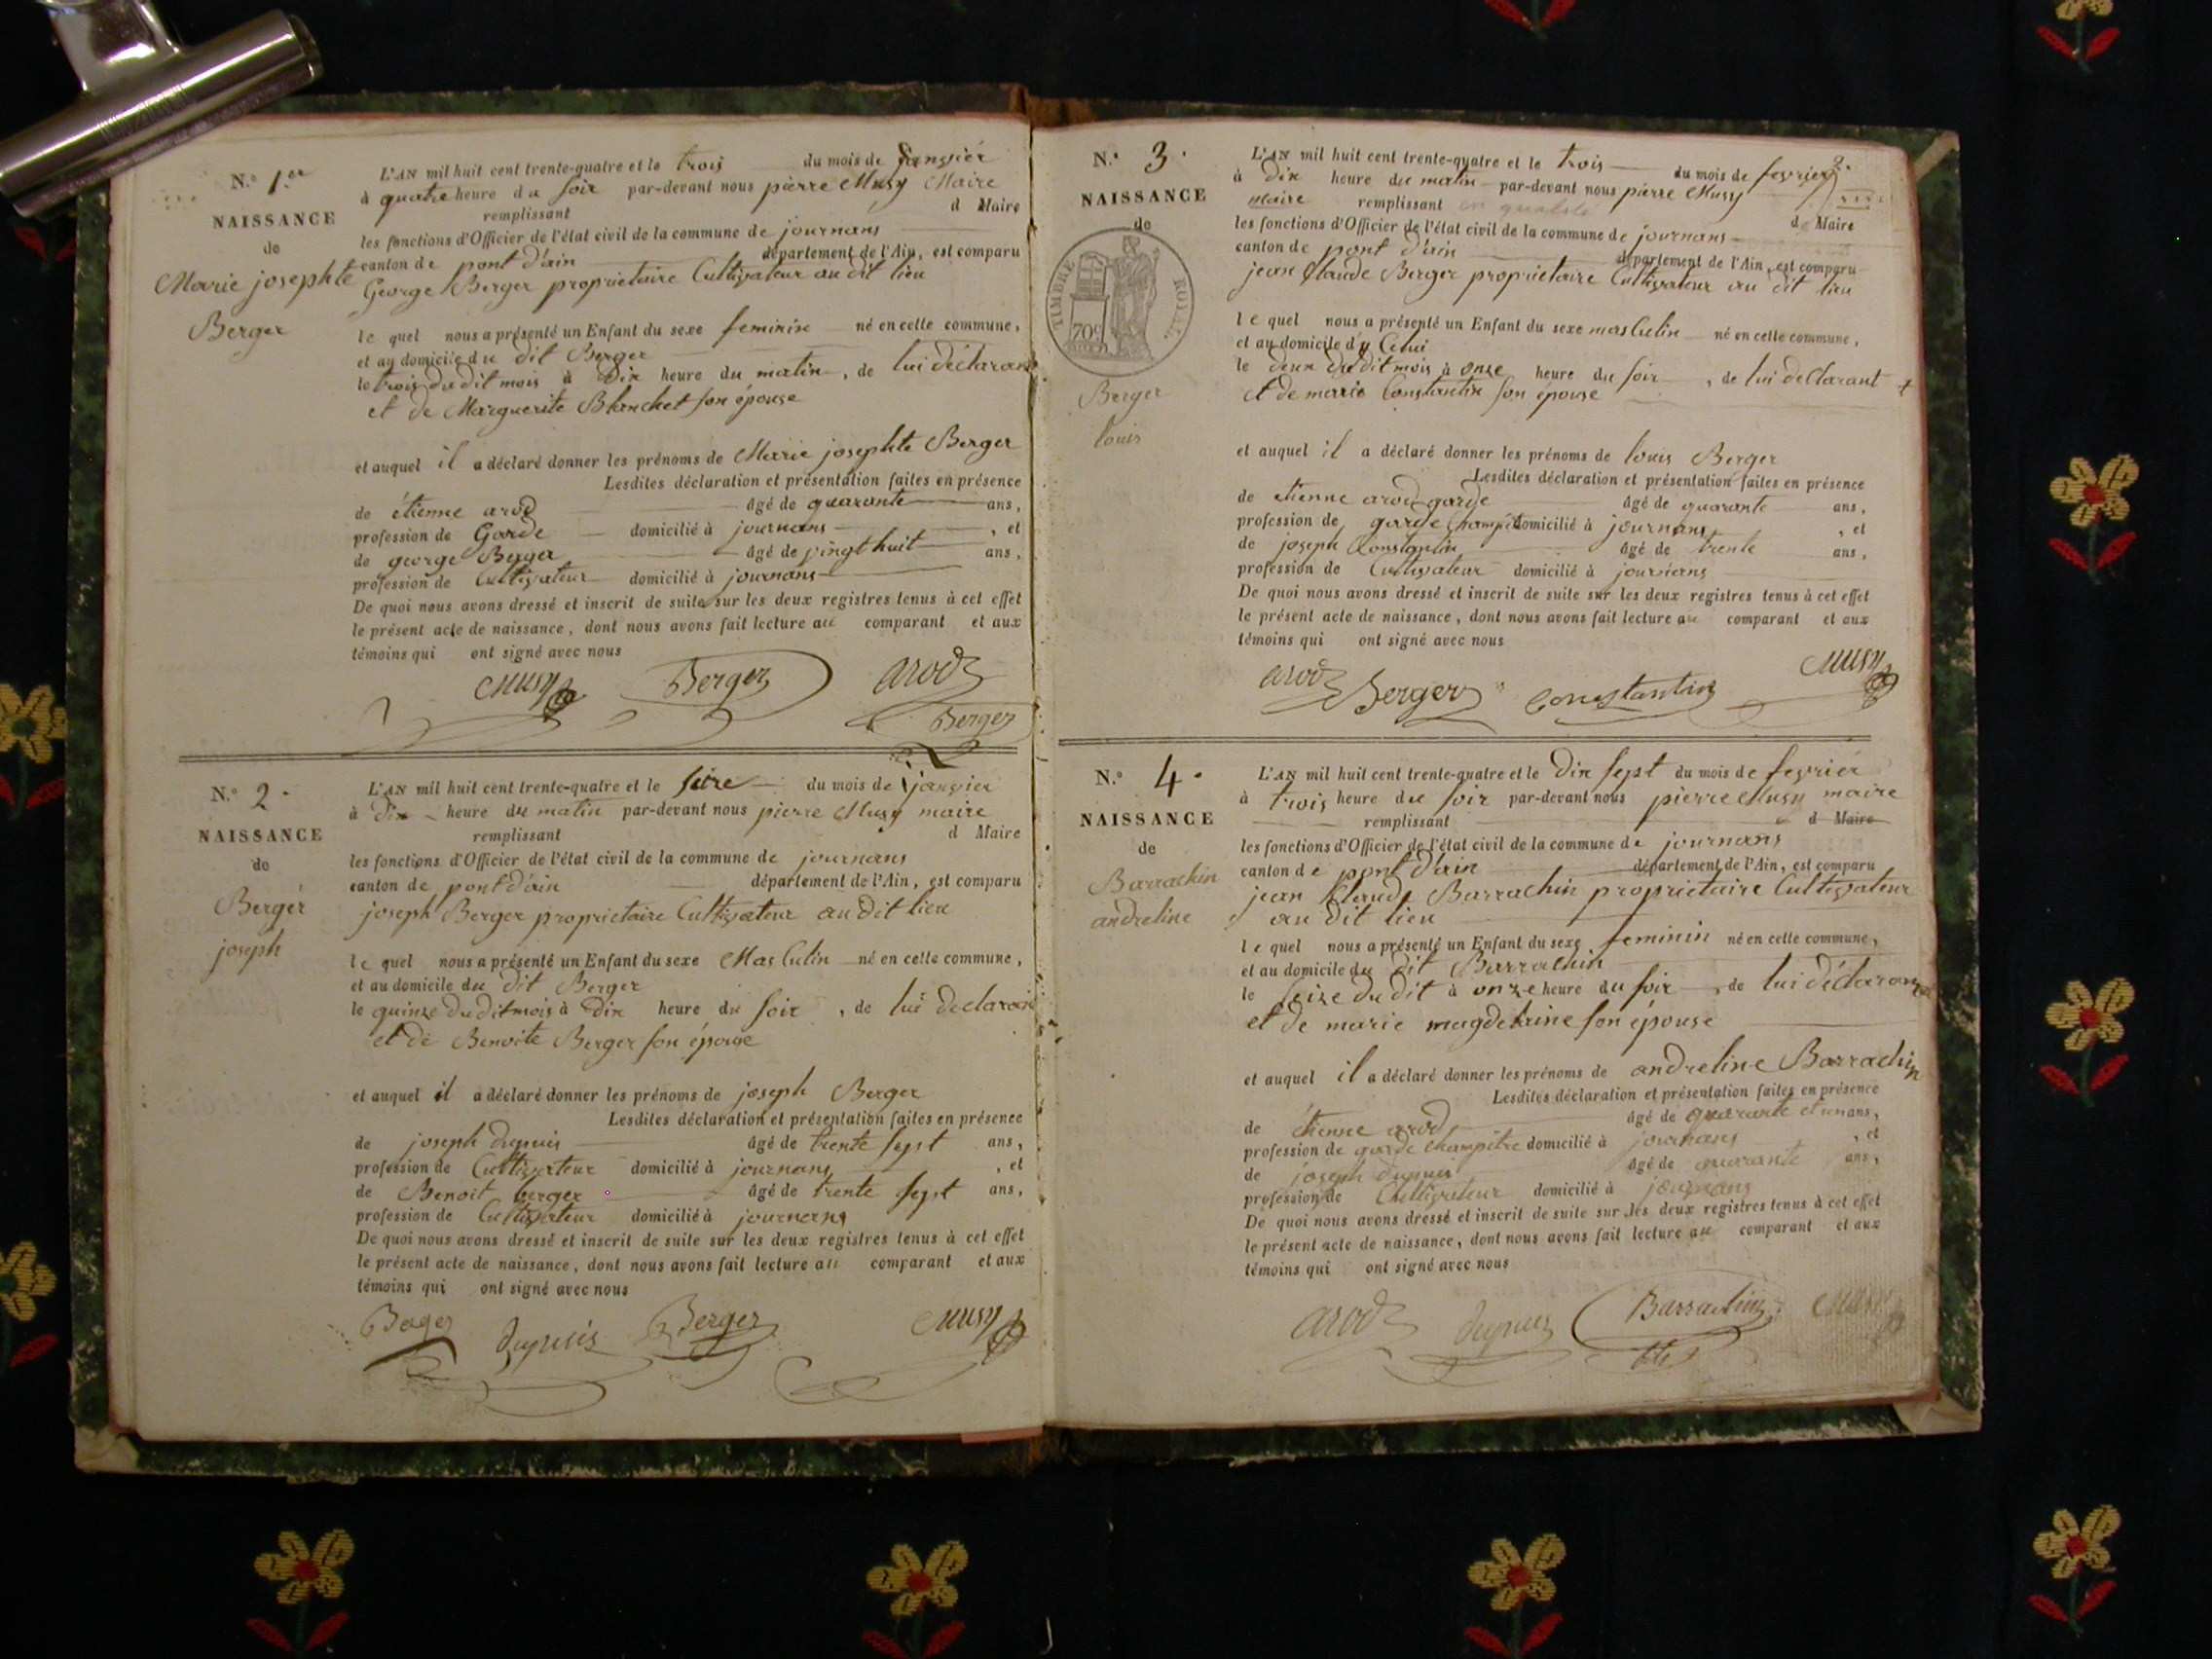 N.° 1.er
NAISSANCE
de
Marie josephte
Berger
L'AN mil huit cent trente-quatre et le trois du mois de janvier
à quatre heure du soir par-devant nous pierre Musy Maire
remplissant d Maire
les fonctions d'Officier de l'état civil de la commune de journans
canton de pont d'ain département de l'Ain, est comparu
George Berger proprietaire Cultivateur au dit lieu
le quel nous a présenté un Enfant du sexe feminin né en cette commune,
et au domicile du dit Berger
le trois du dit mois à Dix heure du matin, de lui déclarant
et de Marguerite Blanchet son épouse
et auquel il a déclaré donner les prénoms de Marie josephte Berger
Lesdites déclaration et présentation faites en présence
de étienne arod âgé de quarante ans,
profession de Garde domicilié à journans, et
de george Berger âgé de vingt huit ans,
profession de Cultivateur domicilié à journans
De quoi nous avons dressé et inscrit de suite sur les deux registres tenus à cet effet
le présent acte de naissance, dont nous avons fait lecture au comparant et aux
témoins qui ont signé avec nous
Musy Berger arod
Berger
N.° 2
NAISSANCE
de
Berger
joseph
L'AN mil huit cent trente-quatre et le seize du mois de janvier
à dix heure du matin par-devant nous pierre Musy maire
remplissant d Maire
les fonctions d'Officier de l'état civil de la commune de journans
canton de pont d'ain département de l'Ain, est comparu
joseph Berger proprietaire Cultivateur au dit lieu
le quel nous a présenté un Enfant du sexe Masculin né en cette commune,
et au domicile du dit Berger
le quinze du dit mois à Dix heure du soir, de lui declarant
et de Benoite Berger son épouse
et auquel il a déclaré donner les prénoms de joseph Berger
Lesdites déclaration et présentation faites en présence
de joseph dupuis âgé de trente sept ans,
profession de Cultivateur domicilié à journans, et
de Benoit berger âgé de trente sept ans,
profession de Cultivateur domicilié à journans
De quoi nous avons dressé et inscrit de suite sur les deux registres tenus à cet effet
le présent acte de naissance, dont nous avons fait lecture au comparant et aux
témoins qui ont signé avec nous
dupuis Berger Musy
N.° 3
NAISSANCE
de
TIMBRE ROYAL
70c
Berger
louis
2.
L'AN mil huit cent trente-quatre et le trois du mois de fevrier
à Dix heure du matin par-devant nous pierre Musy
maire remplissant d Maire
les fonctions d'Officier de l'état civil de la commune de journans
canton de pont d'ain département de l'Ain, est comparu
jean Claude Berger proprietaire Cultivateur au dit lieu
le quel nous a présenté un Enfant du sexe masculin né en cette commune,
et au domicile du Celui
le deux du dit mois à onze heure du soir, de lui declarant
et de marie Constantin son épouse
et auquel il a déclaré donner les prénoms de louis Berger
Lesdites déclaration et présentation faites en présence
de etienne arod garde âgé de quarante ans,
profession de garde champêt domicilié à journans, et
de joseph Constantin âgé de trente ans,
profession de Cultivateur domicilié à journans
De quoi nous avons dressé et inscrit de suite sur les deux registres tenus à cet effet
le présent acte de naissance, dont nous avons fait lecture au comparant et aux
témoins qui ont signé avec nous
arod Berger Constantin Musy
N.° 4
NAISSANCE
de
Barrachin
andreline
L'AN mil huit cent trente-quatre et le Dix sept du mois de fevrier
à trois heure du soir par-devant nous pierre Musy maire
remplissant d Maire
les fonctions d'Officier de l'état civil de la commune de journans
canton de pont d'ain département de l'Ain, est comparu
jean Claude Barrachin proprietaire Cultivateur
au dit lieu
le quel nous a présenté un Enfant du sexe feminin né en cette commune,
et au domicile du dit Barrachin
le seize du dit à onze heure du soir, de lui déclarant
et de marie magdelaine son épouse
et auquel il a déclaré donner les prénoms de andreline Barrachin
Lesdites déclaration et présentation faites en présence
de étienne arod âgé de quarante et un ans,
profession de garde champêtre domicilié à journans, et
de joseph dupuis âgé de quarante ans,
profession de Cultivateur domicilié à journans
De quoi nous avons dressé et inscrit de suite sur les deux registres tenus à cet effet
le présent acte de naissance, dont nous avons fait lecture au comparant et aux
témoins qui ont signé avec nous
arod dupuis Barrachin Musy